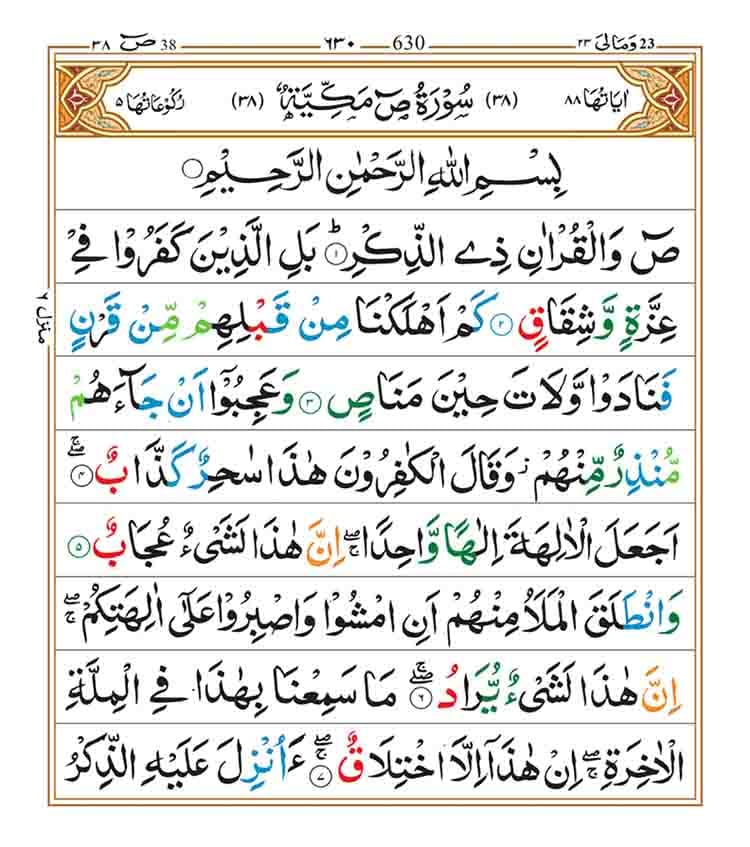 ٣٨ صٓ 38 ٦٣٠ 630 ٢٣ وَمَالِیَ 23
اٰیَاتُهَا ٨٨ (٣٨) سُوْرَةُ صٓ مَكِّیَّةٌ (٣٨) رُكُوْعَاتُهَا ٥
بِسْمِ اللّٰهِ الرَّحْمٰنِ الرَّحِیْمِ
صٓ وَالْقُرْاٰنِ ذِی الذِّكْرِ ؕ ١ بَلِ الَّذِیْنَ كَفَرُوْا فِیْ
عِزَّةٍ وَّشِقَاقٍ ٢ كَمْ اَهْلَكْنَا مِنْ قَبْلِهِمْ مِّنْ قَرْنٍ
فَنَادَوْا وَّلَاتَ حِیْنَ مَنَاصٍ ٣ وَعَجِبُوْۤا اَنْ جَآءَهُمْ
مُّنْذِرٌ مِّنْهُمْ ؗ وَقَالَ الْكٰفِرُوْنَ هٰذَا سٰحِرٌ كَذَّابٌ ۖۚ ٤
اَجَعَلَ الْاٰلِهَةَ اِلٰهًا وَّاحِدًا ۖۚ اِنَّ هٰذَا لَشَیْءٌ عُجَابٌ ٥
وَانْطَلَقَ الْمَلَاُ مِنْهُمْ اَنِ امْشُوْا وَاصْبِرُوْا عَلٰۤی اٰلِهَتِكُمْ ۖۚ
اِنَّ هٰذَا لَشَیْءٌ یُّرَادُ ۖۚ ٦ مَا سَمِعْنَا بِهٰذَا فِی الْمِلَّةِ
الْاٰخِرَةِ ۖۚ اِنْ هٰذَاۤ اِلَّا اخْتِلَاقٌ ۖۚ ٧ ءَاُنْزِلَ عَلَیْهِ الذِّكْرُ
منزل ٦